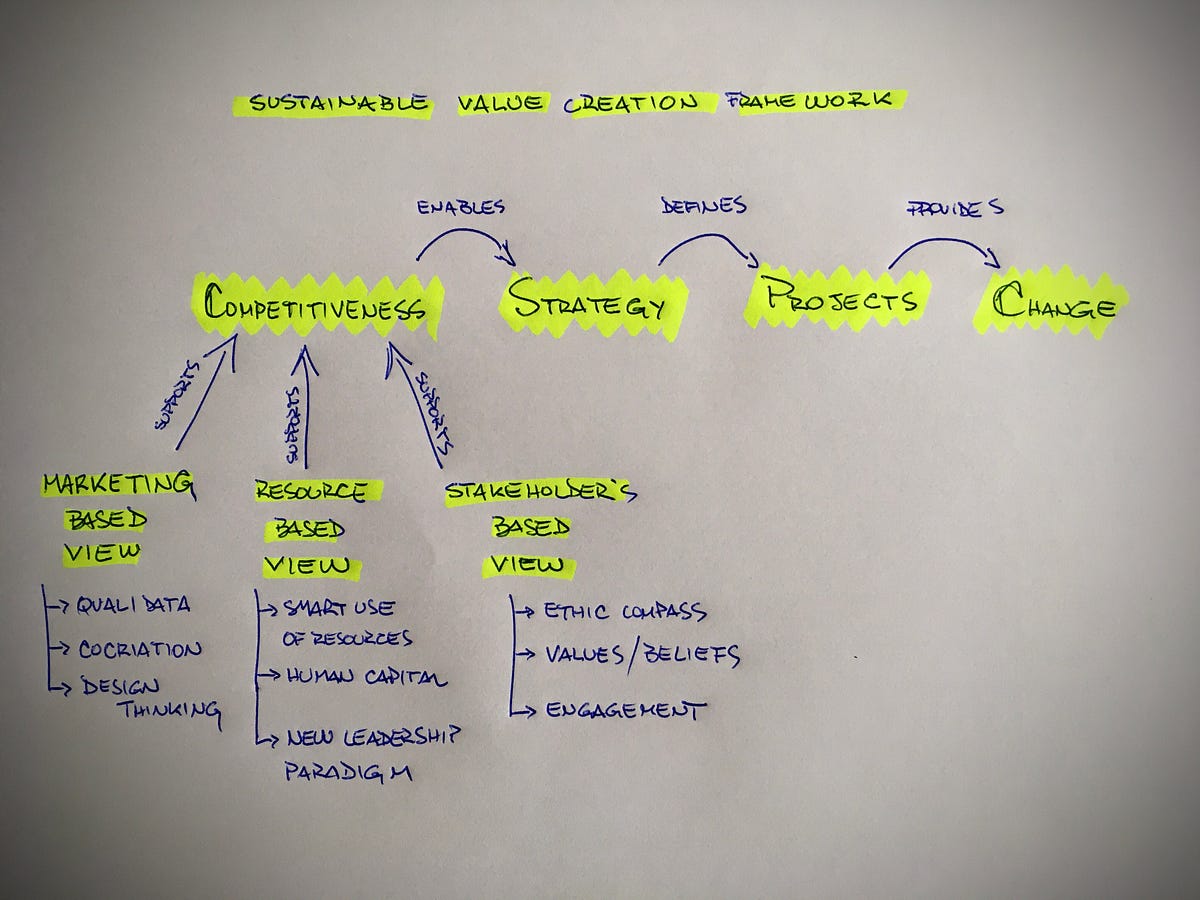 SUSTAINABLE VALUE CREATION FRAMEWORK
ENABLES DEFINES PROVIDES
COMPETITIVENESS STRATEGY PROJECTS CHANGE
SUPPORTS SUPPORTS SUPPORTS
MARKETING
BASED
VIEW
QUALI DATA
COCRIATION
DESIGN
THINKING
RESOURCE
BASED
VIEW
SMART USE
OF RESOURCES
HUMAN CAPITAL
NEW LEADERSHIP
PARADIGM
STAKEHOLDER'S
BASED
VIEW
ETHIC COMPASS
VALUES/BELIEFS
ENGAGEMENT